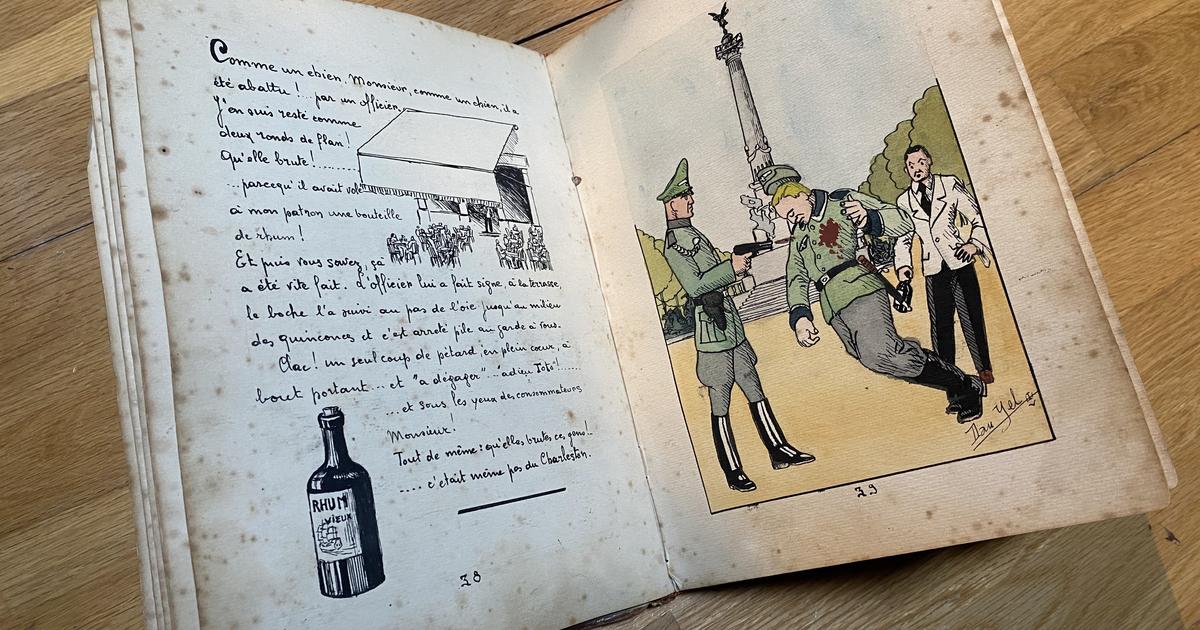 Comme un chien. Monsieur, comme un chien, il a
été abattu !... par un officier.
J'en suis resté comme
deux ronds de flan !
Qu'elle brute !........
...parcequ'il avait volé
à mon patron une bouteille
de rhum !
Et puis vous savez, ça
a été vite fait. L'officier lui a fait signe, à la terrasse,
le boche l'a suivi au pas de l'oie jusqu'au milieu
des quinconces et c'est arreté pile au garde à vous.
Clac ! un seul coup de pétard, en plein cœur, à
bout portant... et "a dégager"..."adieu Toto"!......
...et sous les yeux des consommateurs
Monsieur !
Tout de même : qu'elles brutes ces gens !..
.... c'était même pas du Charleston.
RHUM
VIEUX
38
39